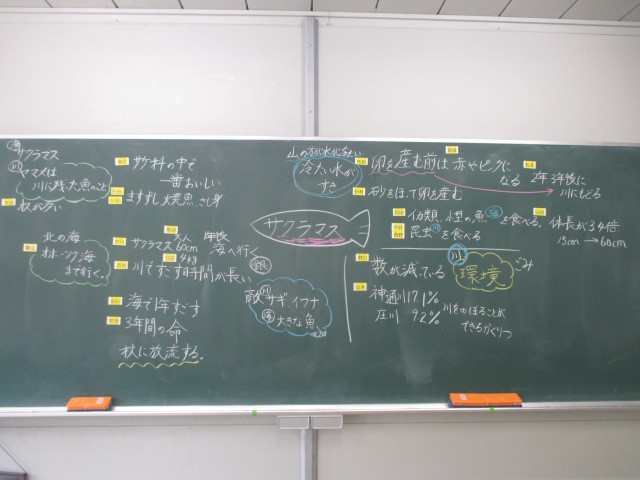 サクラマス
川 ヤマメは
川に残った魚のこと
秋が多い
北の海
オホーツク海
まで行く。
サケ科の中で
一番おいしい
ますずし、焼魚、さし身
サクラマス 60cm 海へ行く
4kg
川ですごす時間が長い
海で1年すごす
3年間の命
秋に放流する。
冷たい水が
すき
サクラマス
銀
敵 川 サギ イワナ
海 大きな魚
卵を産む前は赤やピンクに
なる
2年3年後に
川にもどる
砂をほって卵を産む
イカ類、小型の魚 海 を食べる。
昆虫 川 を食べる
体長が3、4倍
15cm → 60cm
数が減っている
川
環境
ごみ
神通川 17.1%
庄川 92%
川をのぼることが
できるかくりつ